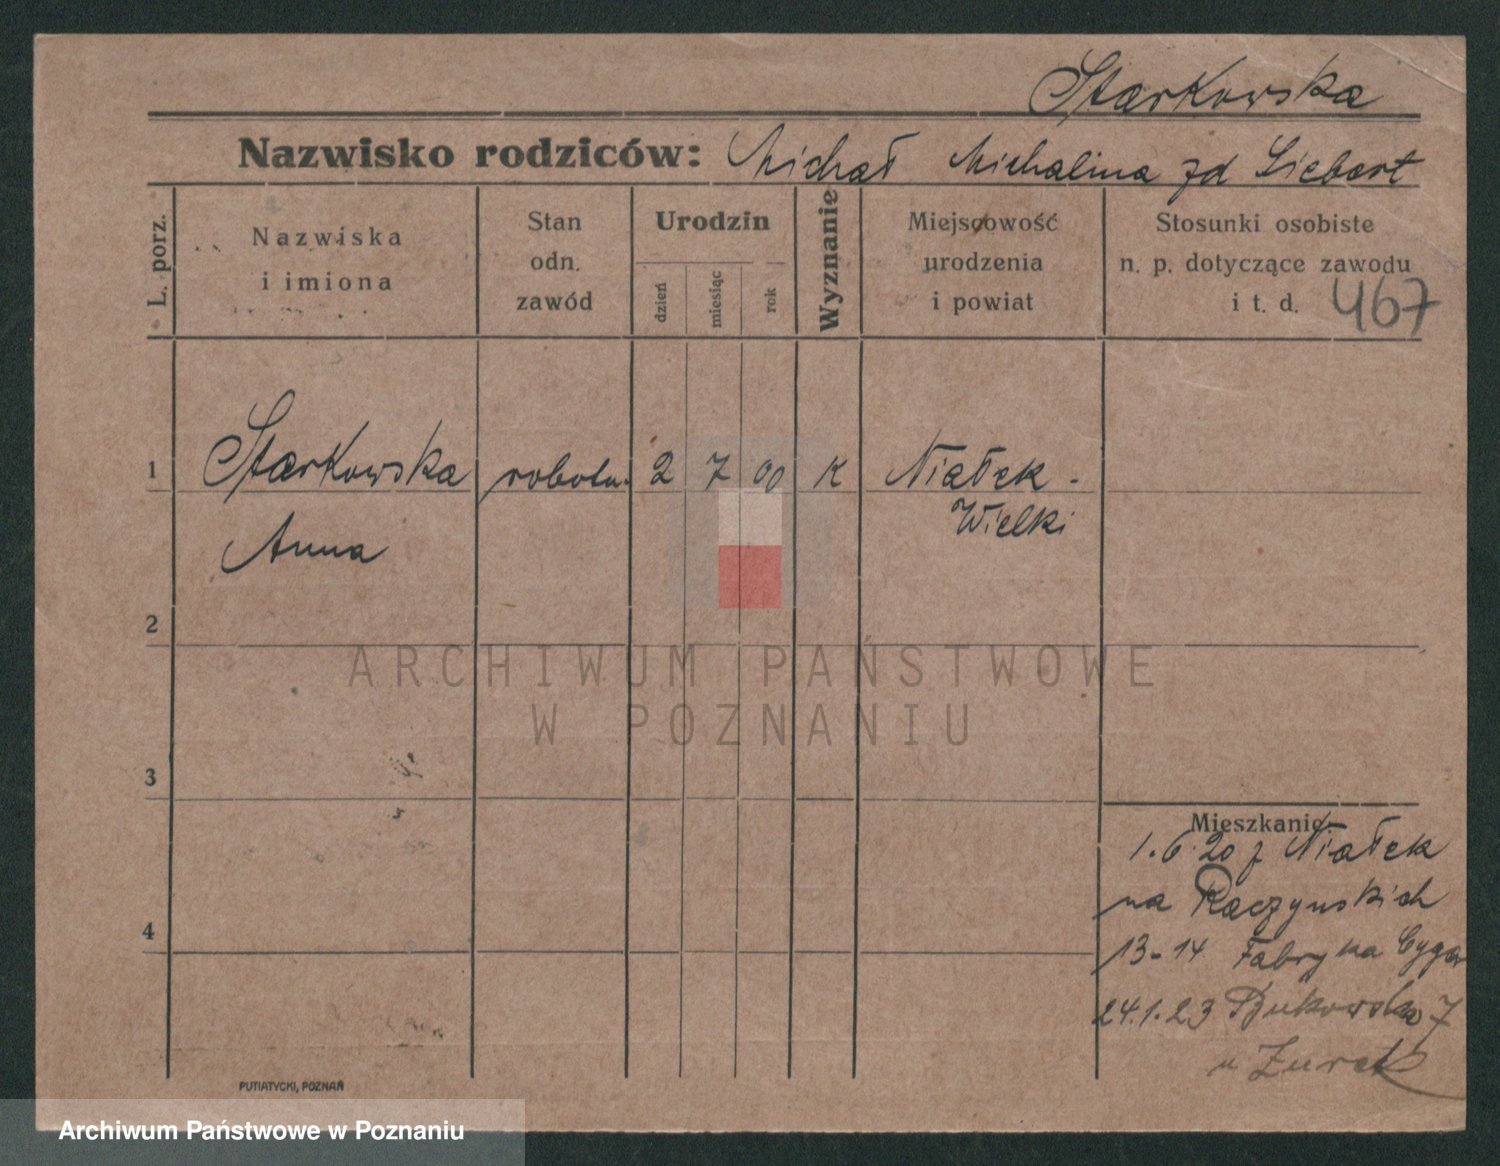 Starkowska
Nazwisko rodziców: Michał Michalina zd Siebert
L. porz.
Nazwiska
i imiona
Stan
odn.
zawód
Urodzin
dzień
miesiąc
rok
Wyznanie
Miejscowość
urodzenia
i powiat
Stosunki osobiste
n. p. dotyczące zawodu
i t. d. 467
1 Starkowska robotn. 2 7 00 K Niałek -
Wielki
Anna
2
ARCHIWUM PAŃSTWOWE
W POZNANIU
3
Mieszkanie
1.6.20 z Niałek
na Raczynskich
4
13-14 Fabryka Cygar
24.1.23 Bukowska 7
u Zurek
PUTIATYCKI, POZNAŃ
Archiwum Państwowe w Poznaniu